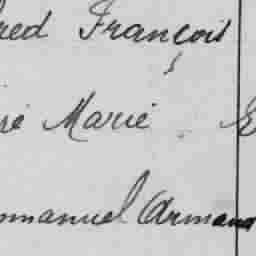 red François
ré Marie E
mmanuel Armand